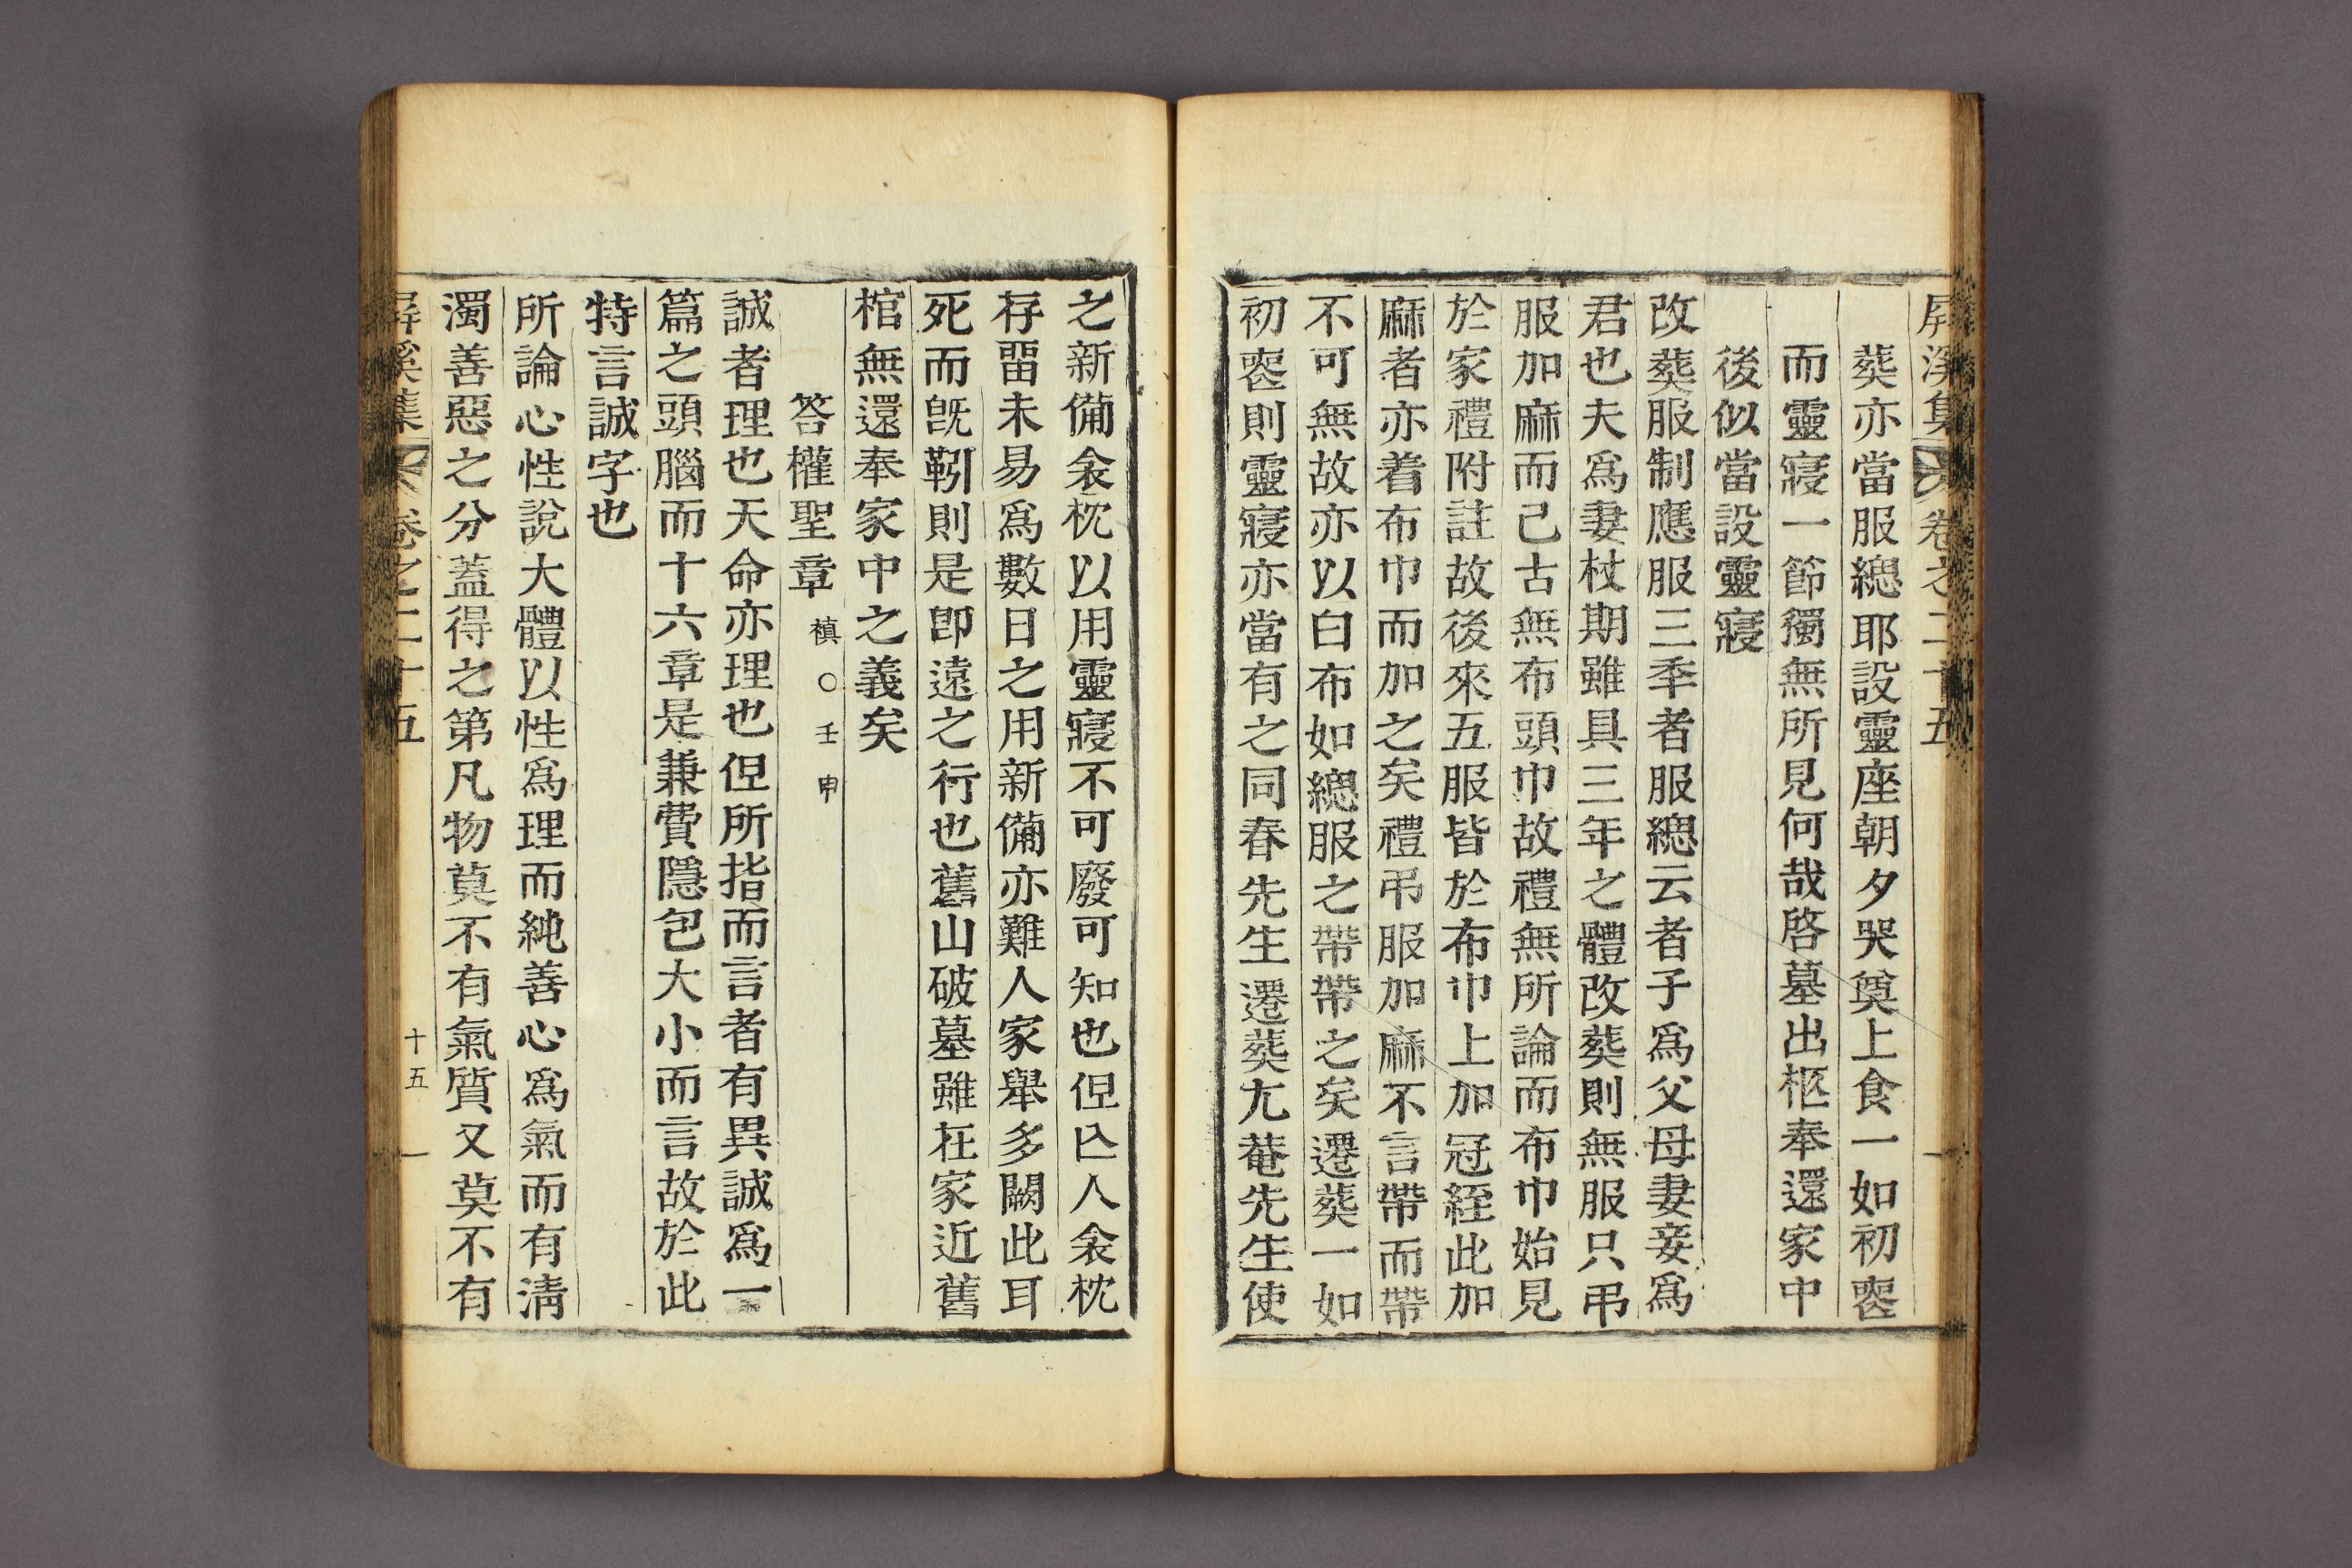 屛溪集 卷之二十五
葬亦當服緦耶設靈座朝夕哭奠上食一如初喪
而靈寢一節獨無所見何哉啓墓出柩奉還家中
後似當設靈寢
改葬服制應服三季者服緦云者子爲父母妻妾爲
君也夫爲妻杖期雖具三年之體改葬則無服只弔
服加麻而已古無布頭巾故禮無所論而布巾始見
於家禮附註故後來五服皆於布巾上加冠絰此加
麻者亦着布巾而加之矣禮弔服加麻不言帶而帶
不可無故亦以白布如緦服之帶帶之矣遷葬一如
初喪則靈寢亦當有之同春先生遷葬尤菴先生使
之新備衾枕以用靈寢不可廢可知也但亾人衾枕
存留未易爲數日之用新備亦難人家舉多闕此耳
死而旣靷則是卽遠之行也舊山破墓雖在家近舊
棺無還奉家中之義矣
答權聖章 禛○壬申
誠者理也天命亦理也但所指而言者有異誠爲一
篇之頭腦而十六章是兼費隱包大小而言故於此
特言誠字也
所論心性說大體以性爲理而純善心爲氣而有淸
濁善惡之分蓋得之第凡物莫不有氣質又莫不有
屛溪集 卷之二十五 十五